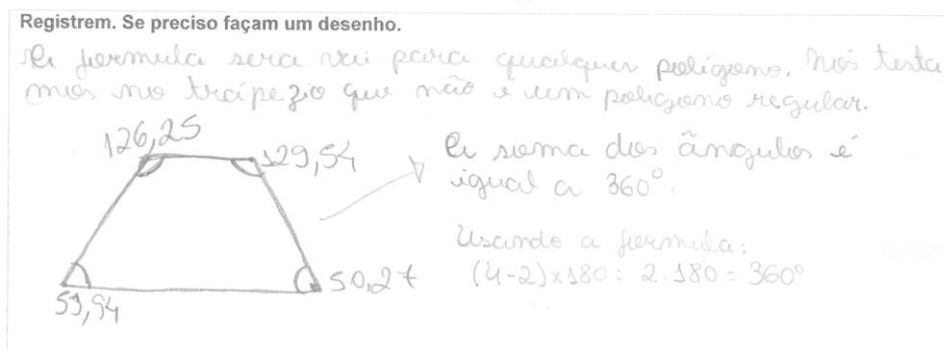 Registrem. Se preciso façam um desenho.
A formula sera vai para qualquer polígono. Nós testa
mos no trápezio que não é um poligono regular.
126,25
129,54
A soma dos ângulos é
igual a 360°.
Usando a formula:
(4-2)x180 = 2.180 = 360°
50,27
53,94